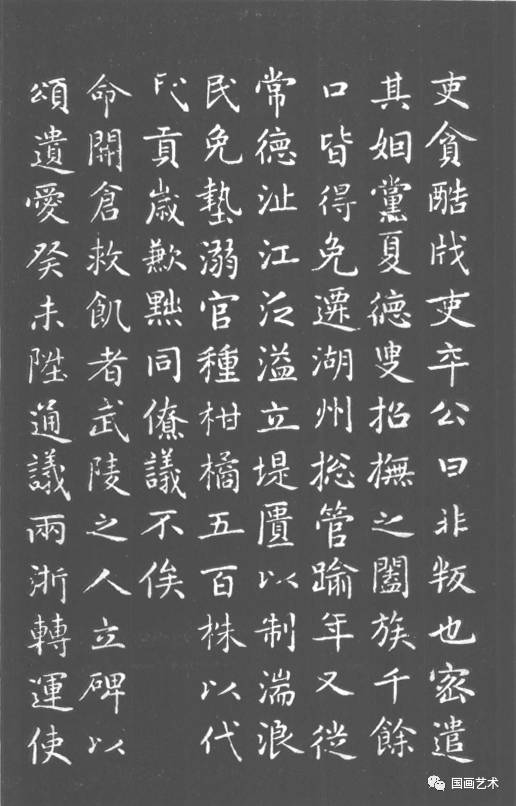 吏貪酷戕吏卒公曰非叛也密遣
其姻黨夏德叟招撫之闔族千餘
口皆得免遷湖州総管踰年又從
常德沚江泛溢立堤匱以制湍浪
民免墊溺官種柑橘五百株以代
民貢歲歉黙同僚議不俟
命開倉救飢者武陵之人立碑以
頌遺愛癸未陞通議兩浙轉運使
国画艺术